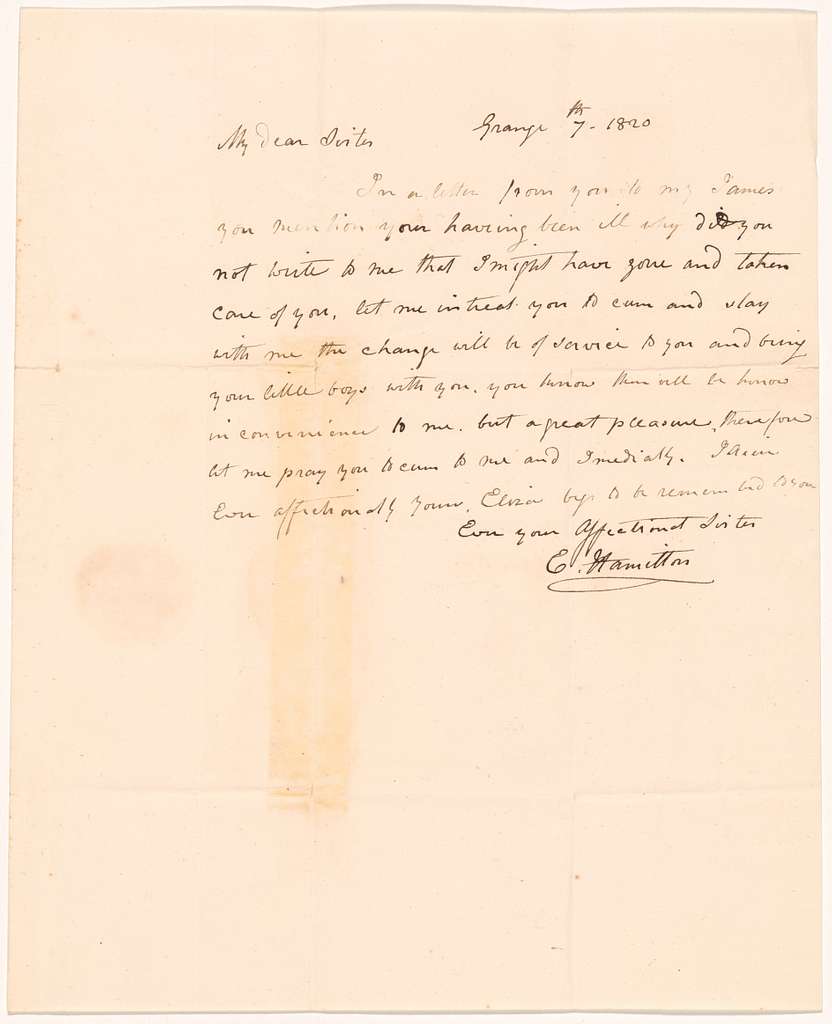 Grange 7th - 1820
My Dear Sister
In a letter from you to my James
you mention your haveing been ill why did you
not write to me that I might have gone and taken
care of you, let me intreat you to cum and stay
with me the change will be of service to you and bring
your little boys with you. you know thare will be
inconvenience to me. but a great pleasure, therefore
let me pray you to cum to me and Imediatly.
affectionally yours, Eliza begs to be to you
Ever your Affectionat Sister
E. Hamilton